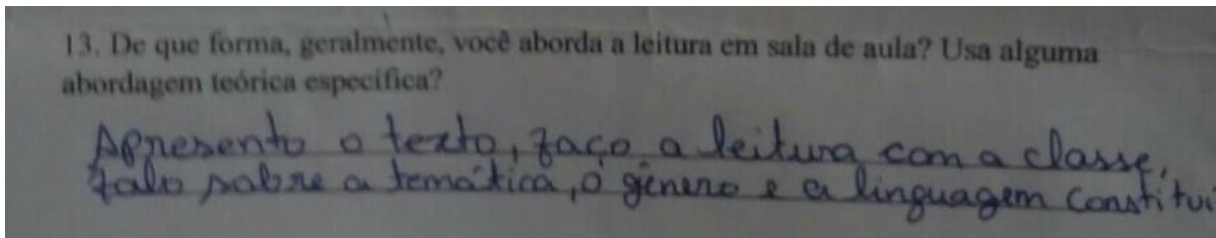 13. De que forma, geralmente, você aborda a leitura em sala de aula? Usa alguma
abordagem teórica específica?
Apresento o texto, faço a leitura com a classe,
falo sobre a temática, o gênero e a linguagem constitui